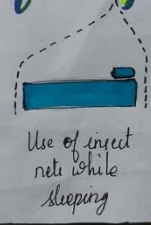 Use of insect
nets while
sleeping